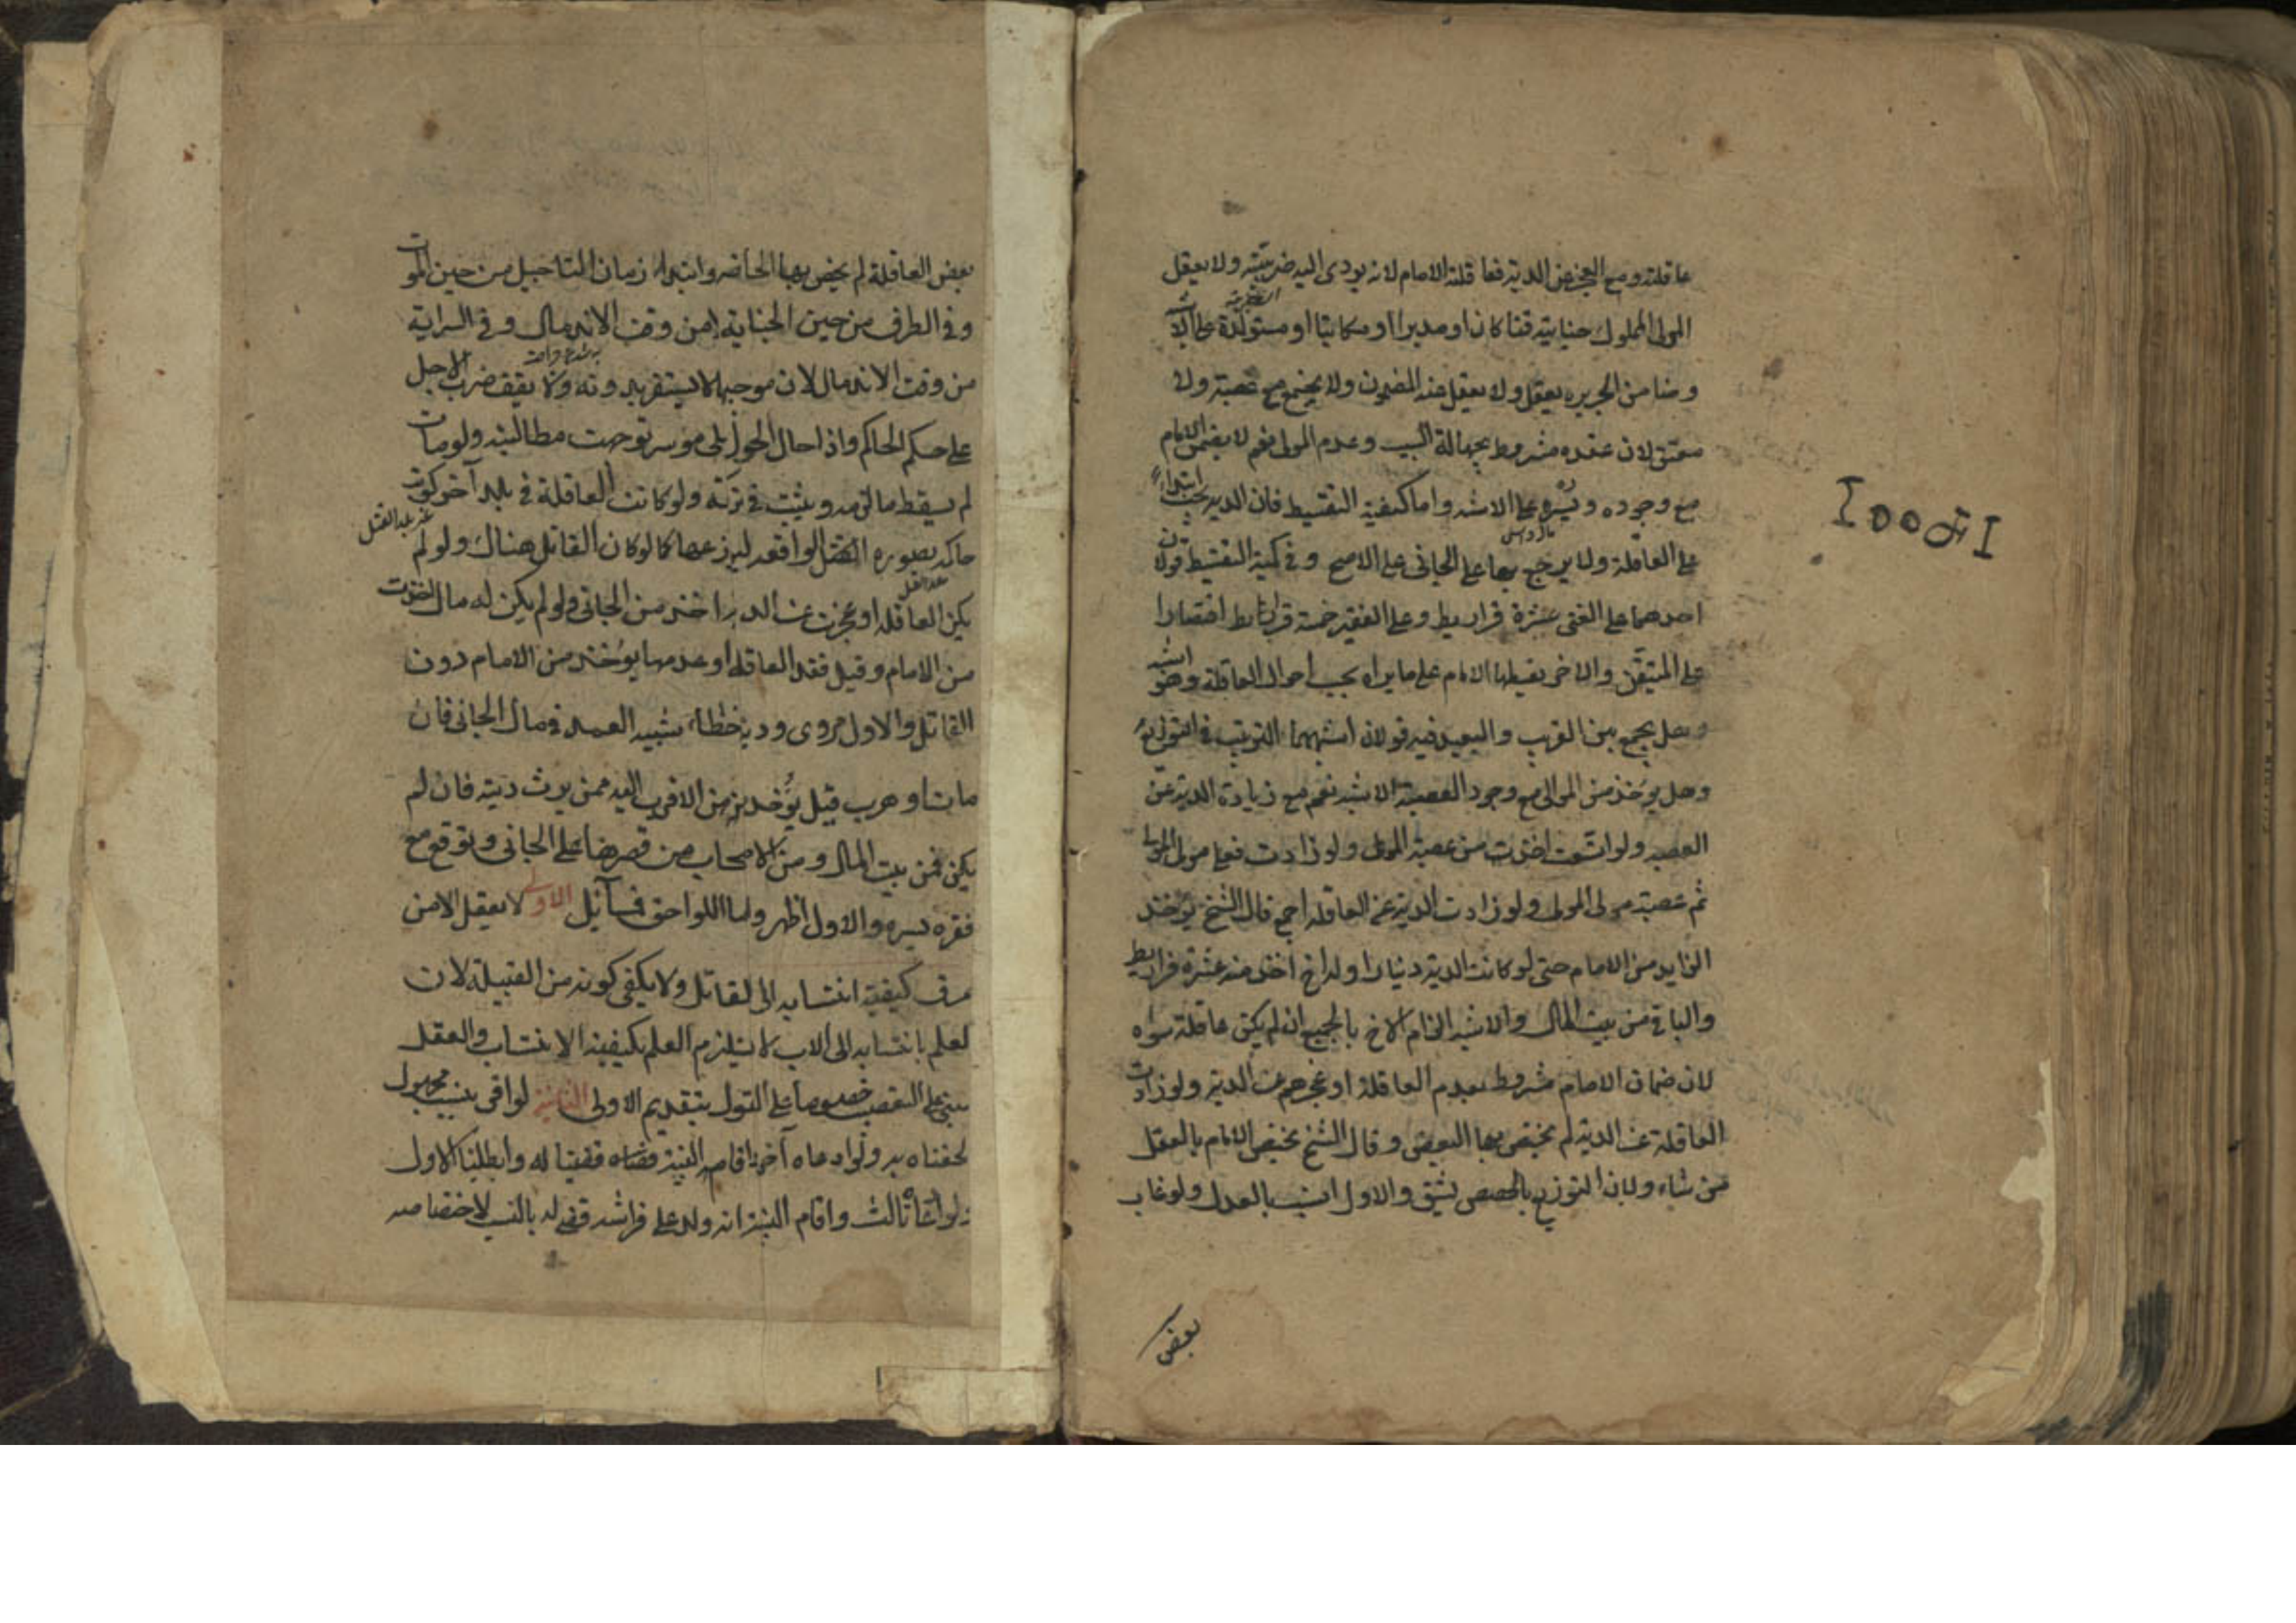 عاقلته ومع العجز عن الدية فعاقلته الامام لانه يودى اليه ضريبته ولا يعقل
المولى المملوك جنايته قنا كان او مدبرا او مكاتبا او مستولدة على الاشبه
وضامن الجريره يعقل ولا يعقل عنه المضمون ولا يجتمع مع عصبة ولا
معتق لان عقده مشروط بجهالة النسب وعدم المولى نعم لا يضمن الامام
مع وجوده ويسره على الاشبه واما كيفية التقسيط فان الدية تجب ابتداء
على العاقلة ولا يرجع بها على الجانى على الاصح وفى كمية التقسيط قولان
احدهما على الغنى عشرة قراريط وعلى الفقير خمسة قراريط اقتصارا
على المتيقن والاخر يقسطها الامام على ما يراه بحسب احوال العاقلة وهو اشبه
وهل يجمع بين القريب والبعيد فيه قولان اشبههما الترتيب فى التوزيع
وهل يوخذ من الموالى مع وجود العصبة الاشبه نعم مع زيادة الدية عن
العصبه ولو اتسعت اخذت من عصبة المولى ولو زادت فعلى مولى المولى
ثم عصبة مولى المولى ولو زادت الدية عن العاقله اجمع قال الشيخ يوخذ
الزايد من الامام حتى لو كانت الدية دينارا وله اخ اخذ منه عشرة قراريط
والباقى من بيت المال والاشبه الزام الاخ بالجميع ان لم يكن عاقلة سواه
لان ضمان الامام مشروط بعدم العاقلة او عجزهم عن الدية ولو زادت
العاقلة عن الدية لم يختص بها البعض وقال الشيخ يختص الامام بالعقل
من شاء ولان التوزيع بالحصص يشق والاول انسب بالعدل ولو غاب
بعض
بعض العاقلة لم يخص بها الحاضر وابتداء زمان التاجيل من حين الموت
وفى الطرف من حين الجناية لا من وقت الاندمال وفى السراية
من وقت الاندمال لان موجبها لا يستقر بدونه ولا يقف ضرب الاجل
على حكم الحاكم واذا حال الحول على موسر توجهت مطالبته ولو مات
لم يسقط ما لزمه ويثبت فى تركته ولو كانت العاقلة فى بلد آخر كوتب
حاكمه بصورة الواقعه ليوزعها كما لو كان القاتل هناك ولو لم
يكن العاقله او عجزت عن الديه اخذت من الجانى ولو لم يكن له مال اخذت
من الامام وقيل مع فقد العاقله او عدمها يوخذ من الامام دون
القاتل والاول مروى ودية خطاء شبيه العمد فى مال الجانى فان
مات او هرب قيل يوخذ من الاقرب اليه ممن يرث ديته فان لم
يكن فمن بيت المال ومن الاصحاب من قصرها على الجانى وتوقع مع
فقره يسره والاول اظهر واما اللواحق فمسآئل الاولى لا يعقل الا من
عرف كيفية انتسابه الى القاتل ولا يكفى كونه من القبيلة لان
العلم بانتسابه الى الاب لا يستلزم العلم بكيفية الانتساب والعقل
مبنى على التعصيب خصوصا على القول بتقديم الاولى الثانية لو اقر بنسب مجهول
الحقناه به ولو ادعاه آخر واقام البينة قضينا له وابطلنا الاول
ولو ادعاه ثالث واقام البينة انه ولد على فراشه قضى له بالنسب لاختصاصه